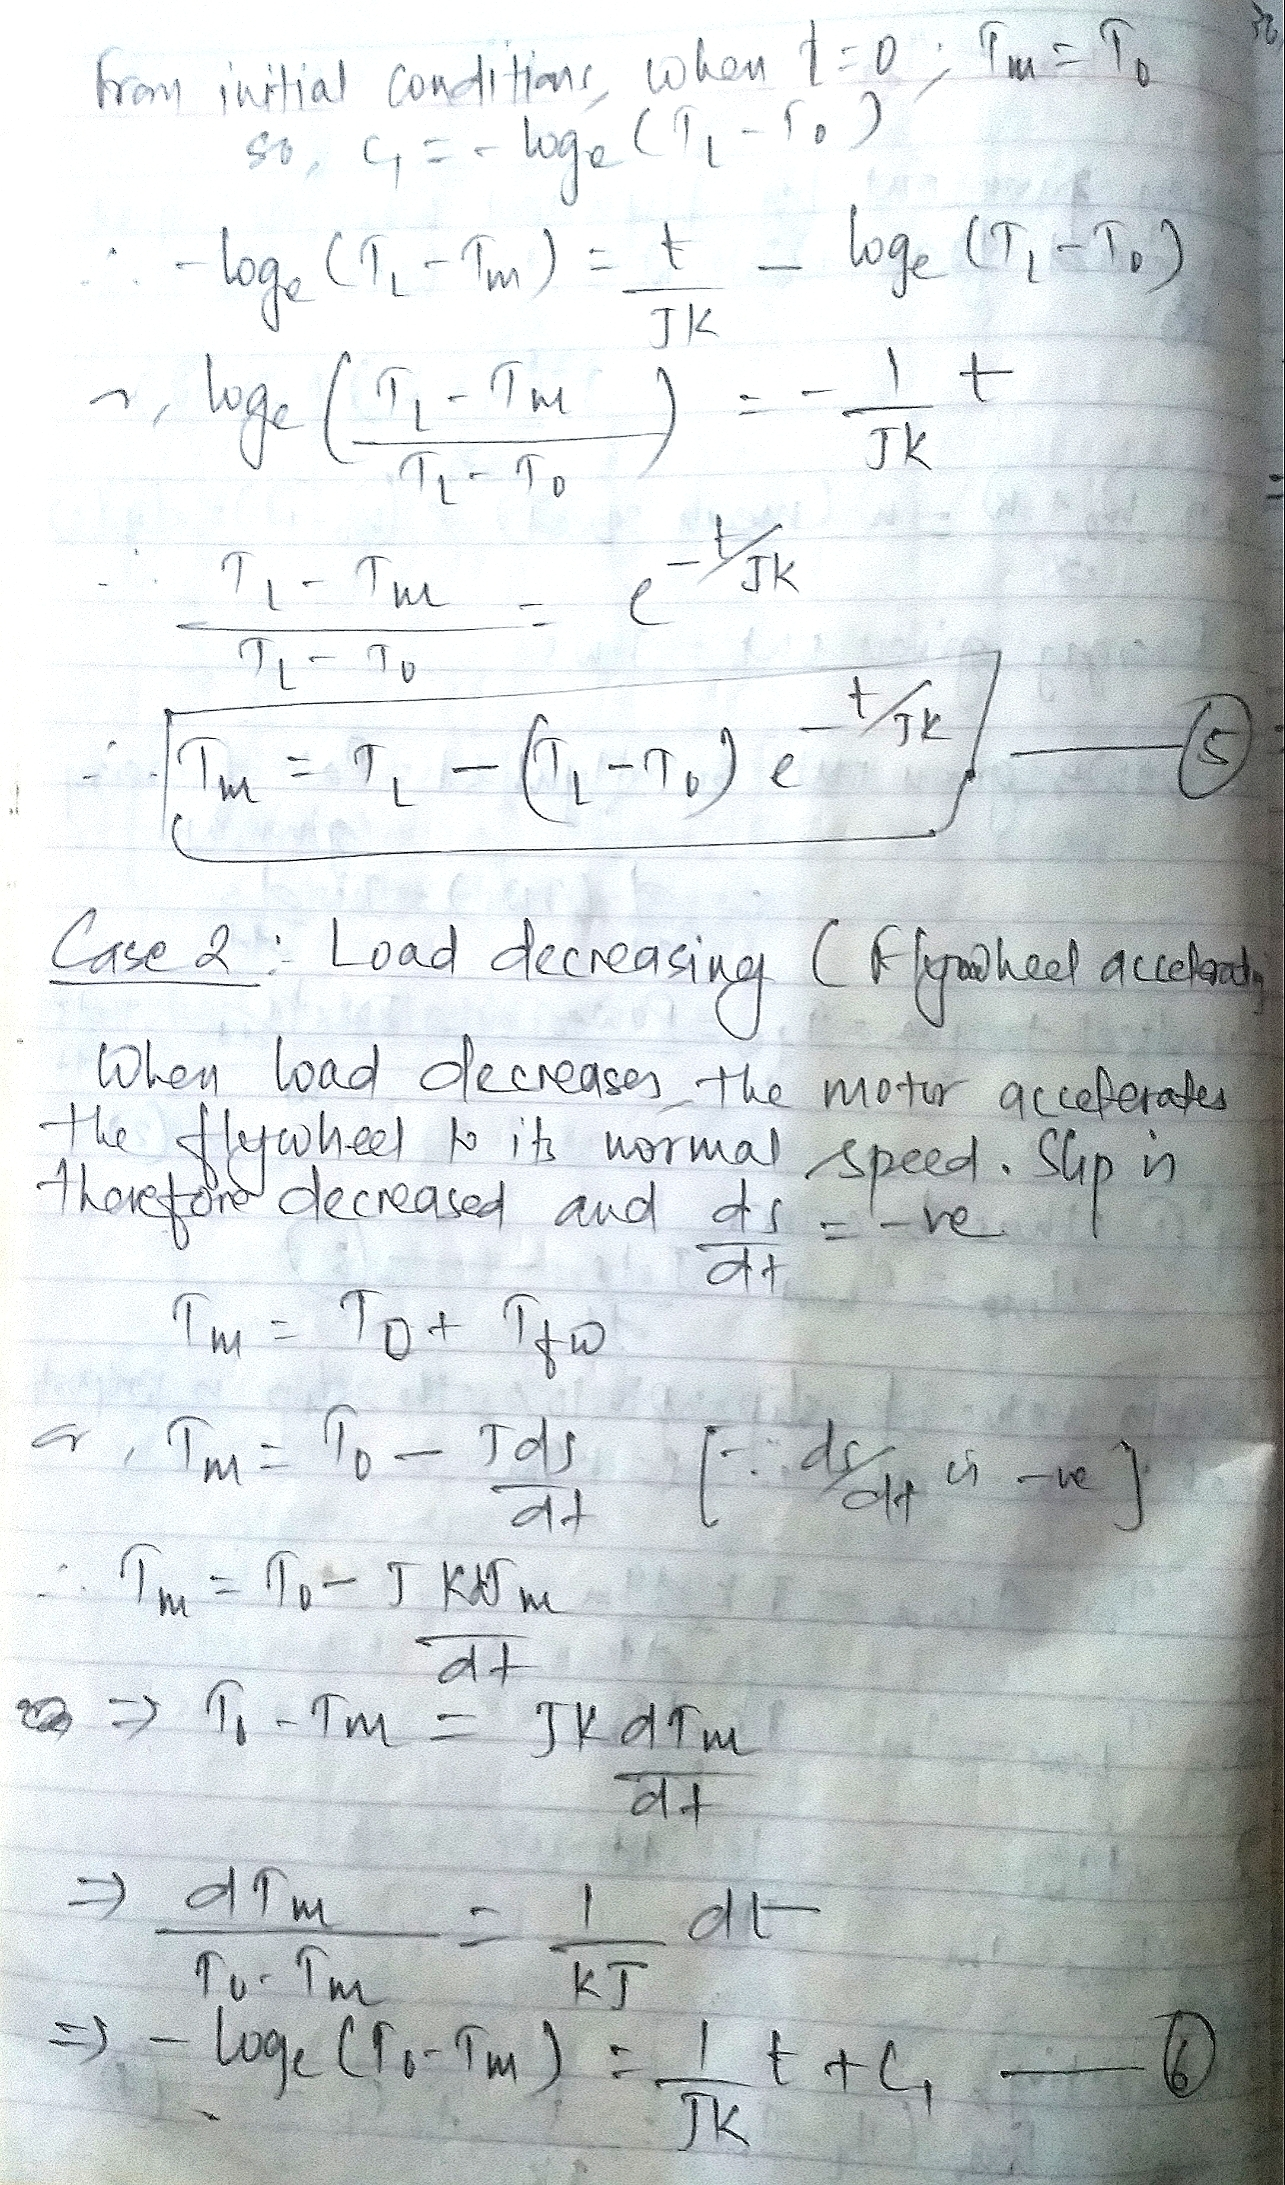 From initial conditions, when t=0; Tm = T0
so, C1 = - loge (TL - T0)
∴ -loge (TL - Tm) = t/JK - loge (TL - T0)
or, loge ((TL - Tm)/(TL - T0)) = - 1/JK t
∴ (TL - Tm)/(TL - T0) = e^(-t/JK)
∴ Tm = TL - (TL - T0) e^(-t/JK) —— (5)
Case 2: Load decreasing (Flywheel accelerating
When load decreases, the motor accelerates
the flywheel to its normal speed. Slip is
therefore decreased and ds/dt = -ve
Tm = T0 + Tfw
or, Tm = T0 - J ds/dt [∵ ds/dt is -ve]
∴ Tm = T0 - J K dTm/dt
⇒ T0 - Tm = JK dTm/dt
⇒ dTm/(T0 - Tm) = 1/KJ dt
⇒ - loge (T0 - Tm) = 1/JK t + C1 —— (6)